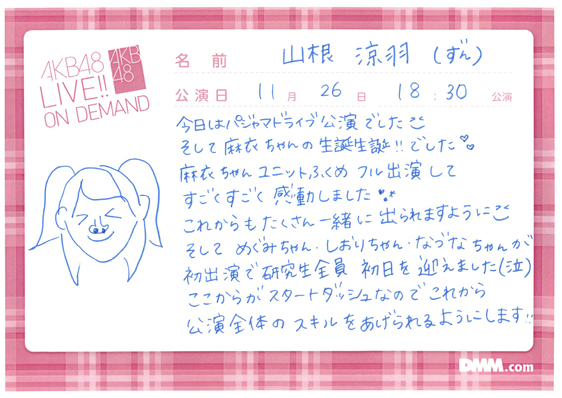 AKB48
LIVE!!
ON DEMAND
AKB
48
名前 山根 涼羽 (ずん)
公演日 11月 26日 18:30 公演
今日はパジャマドライブ公演でした
そして麻衣ちゃんの生誕生誕!!でした
麻衣ちゃんユニットふくめフル出演して
すごくすごく感動しました
これからもたくさん一緒に出られますように
そして めぐみちゃん・しおりちゃん・なづなちゃんが
初出演で研究生全員 初日を迎えました(泣)
ここからがスタートダッシュなのでこれから
公演全体のスキルをあげられるようにします!!
DMM.com